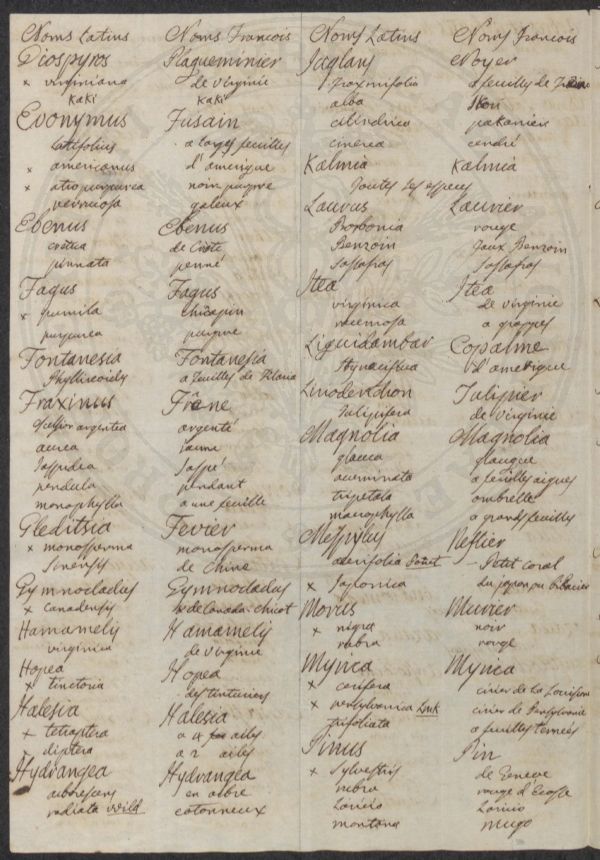 Noms Latins Noms Francois
Diospyros Plaqueminier
x virginiana de virginie
Kaki Kaki
Evonymus Fusain
latifolius a larges feuilles
x americanus d'amerique
x atropurpurea noir purpre
verrucosa galeux
Ebenus Ebenus
cretica de Crete
pinnata penné
Fagus Fagus
x pumila Chicapin
purpurea purpre
Fontanesia Fontanesia
Phyllireoides a feuilles de
Fraxinus Frêne
argentea argenté
aurea jaune
Jaspidea Jaspé
pendula pendant
monophylla a une feuille
Gleditsia Fevier
x monosperma monosperma
Sinensis de Chine
Gymnocladus Gymnocladus
x canadensis de Canada chicot
Hamamelis Hamamelis
virginica de virginie
Hopea Hopea
x tinctoria des tinturiers
Halesia Halesia
x tetraptera a 4 ailes
diptera a 2 ailes
Hydrangea Hydrangea
arborescens en arbre
radiata Willd cotonneux
Noms Latins Noms Francois
Juglans Noyer
fraxinifolia a feuilles de
alba
cilindrica pakanier
cinerea cendré
Kalmia Kalmia
toutes les especes
Laurus Laurier
Borbonia rouge
Benzoin faux Benzoin
Sassafras Sassafras
Itea Itea
virginica de virginie
racemosa a grappes
Liquidambar Copalme
styraciflua d'amerique
Liriodendron Tulipier
tulipifera de virginie
Magnolia Magnolia
glauca glauque
acuminata a feuilles aigues
tripetala ombrelle
macrophylla a grands feuilles
Mespilus Neflier
Poiret - Petit coral
x Japonica du japon ou Bibacier
Morus Murier
x nigra noir
rubra rouge
Myrica Myrica
x cerifera cirier de la Louisiane
x pensylvanica Link cirier de Pensylvanie
trifoliata a feuilles ternées
Pinus Pin
x Sylvestris de Geneve
rubra rouge d'Ecosse
Laricio Laricio
montana mugo